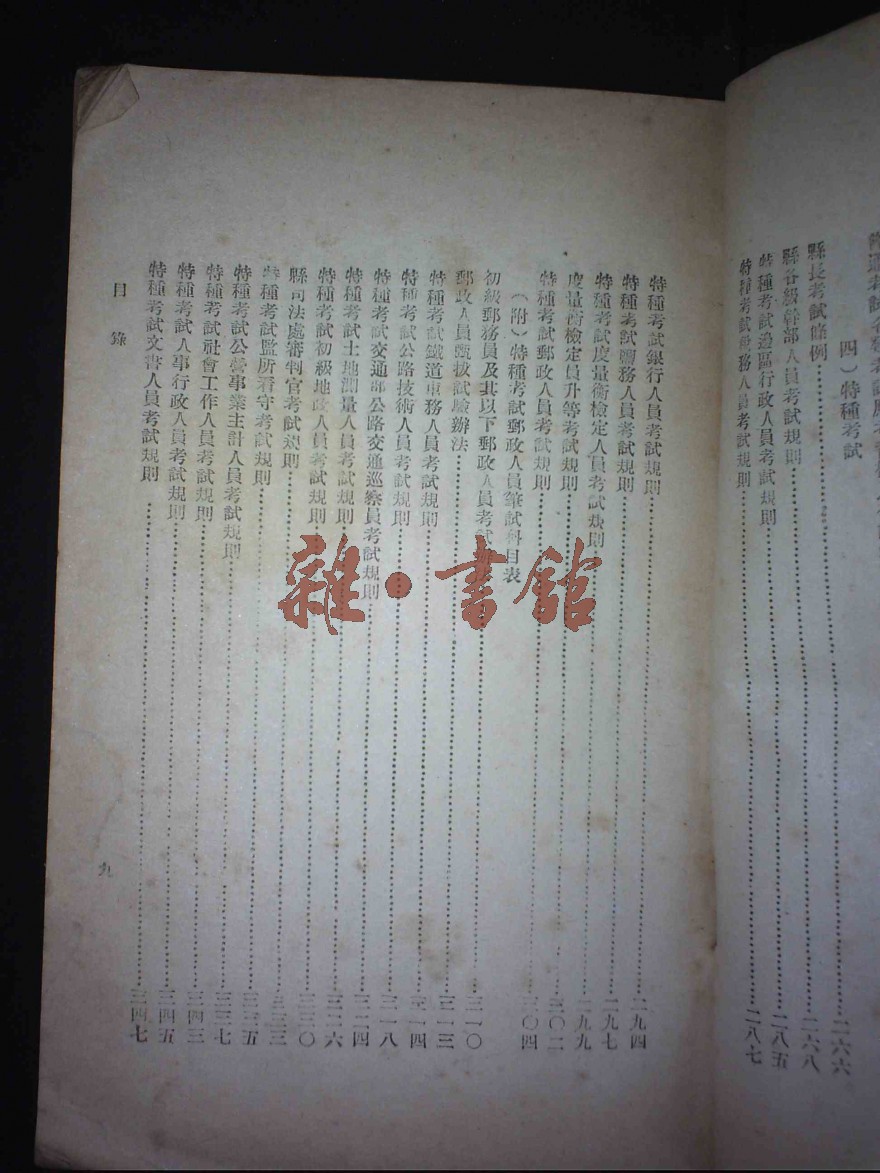 四）特種考試
縣長考試條例……二六六
縣各級幹部人員考試規則……二六八
特種考試邊區行政人員考試規則……二八五
特種考試 務人員考試規則……二八七
特種考試銀行人員考試規則……二九四
特種考試鹽務人員考試規則……二九七
特種考試度量衡檢定人員考試規則……二九九
度量衡檢定員升等考試規則……三〇二
特種考試郵政人員考試規則……三〇四
（附）特種考試郵政人員筆試科目表
初級郵務員及其以下郵政人員考試……三一〇
郵政人員甄拔試驗辦法……三一三
特種考試鐵道車務人員考試規則……三一四
特種考試公路技術人員考試規則……三一八
特種考試交通部公路交通巡察員考試規則……三二四
特種考試土地測量人員考試規則……三二六
特種考試初級地政人員考試規則……三三〇
縣司法處審判官考試規則……三三三
特種考試監所看守考試規則……三三五
特種考試公營事業主計人員考試規則……三三七
特種考試社會工作人員考試規則……三四三
特種考試人事行政人員考試規則……三四五
特種考試文書人員考試規則……三四七
目錄
九
雜·書館